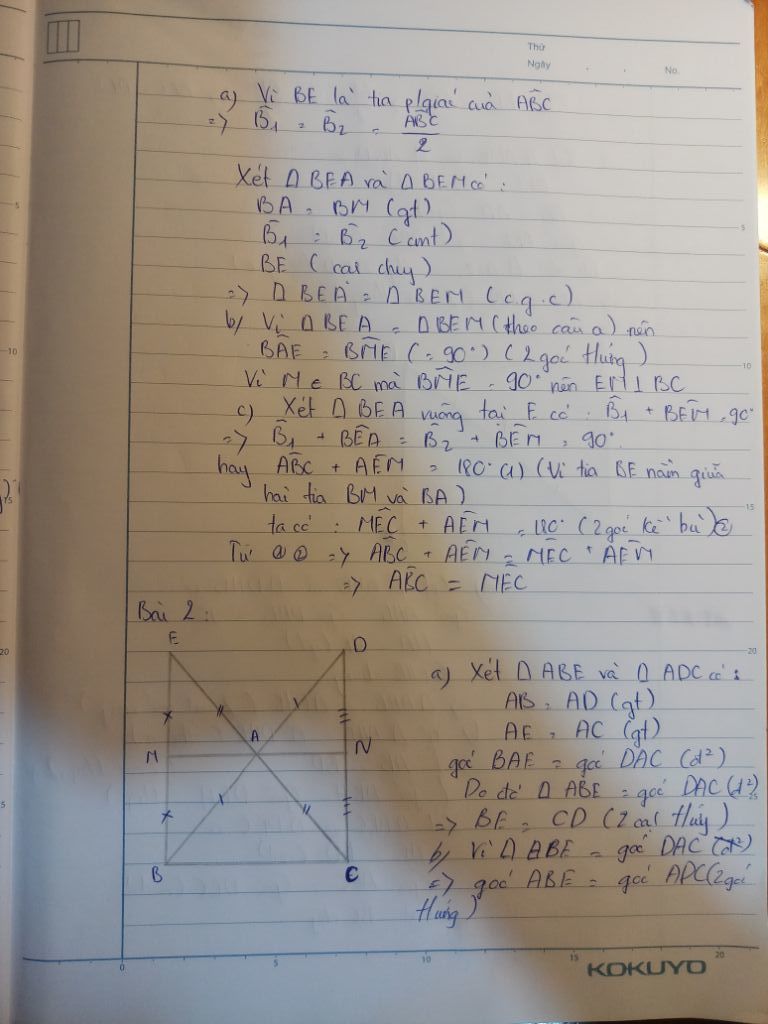 Thứ
Ngày
No.
a) Vì BE là tia p/giác của ABC
=> B̂1 = B̂2 = ABC/2
Xét Δ BEA và Δ BEM có :
BA = BM (gt)
B̂1 = B̂2 (cmt)
BE (cạh chug)
=> Δ BEA = Δ BEM (c.g.c)
b/ Vì Δ BEA = Δ BEM (theo câu a) nên
BÂE = BM̂E (= 90°) (2 góc tướng)
Vì M ∈ BC mà BM̂E = 90° nên EM ⊥ BC
c) Xét Δ BEA vuông tại E có : B̂1 + BÊM = 90°
=> B̂1 + BÊA = B̂2 + BÊM = 90°
hay AB̂C + AÊM = 180° (1) (Vì tia BE nằm giữa
hai tia BM và BA)
ta có : MÊC + AÊM = 180° (2 góc kề bù) ②
Từ ① ② => AB̂C + AÊM = MÊC + AÊM
=> AB̂C = MEC
Bài 2 :
E D
A
M N
B C
a) Xét Δ ABE và Δ ADC có :
AB = AD (gt)
AE = AC (gt)
góc BAE = góc DAC (đ²)
Do đó Δ ABE = góc DAC (đ²)
=> BE = CD (2 cạh tướg)
b/ Vì Δ ABE = góc DAC (đ²)
=> góc ABE = góc ADC (2 góc
tướng)
KOKUYO